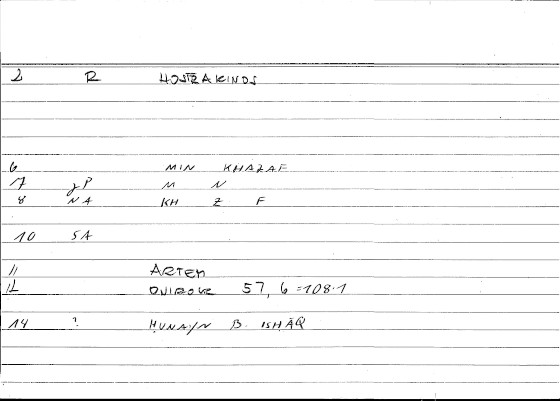 2 R HOSTRAKINOS
6 MIN KHAZAF
7 gP M N
8 NA KH Z F
10 SA
11 ARTEM
12 ONIROKR 57, 6 = 108.1
14 ? ḤUNAYN B. ISHĀQ